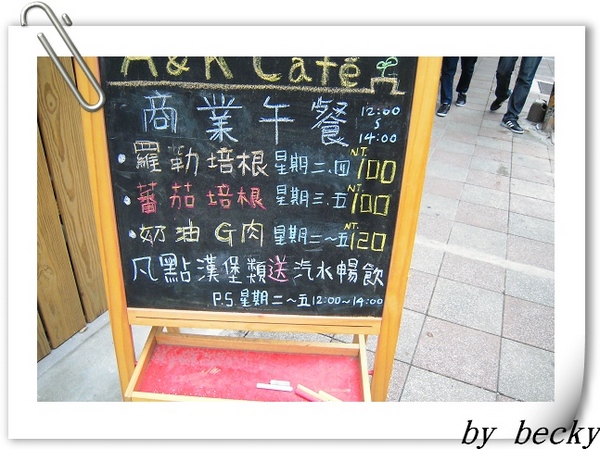 A&K Café
商業午餐 12:00 ~ 14:00
羅勒培根 星期二.四 NT.100
蕃茄培根 星期三.五 NT.100
奶油G肉 星期二~五 NT.120
凡點漢堡類送汽水暢飲
P.S.星期二~五12:00~14:00
by becky